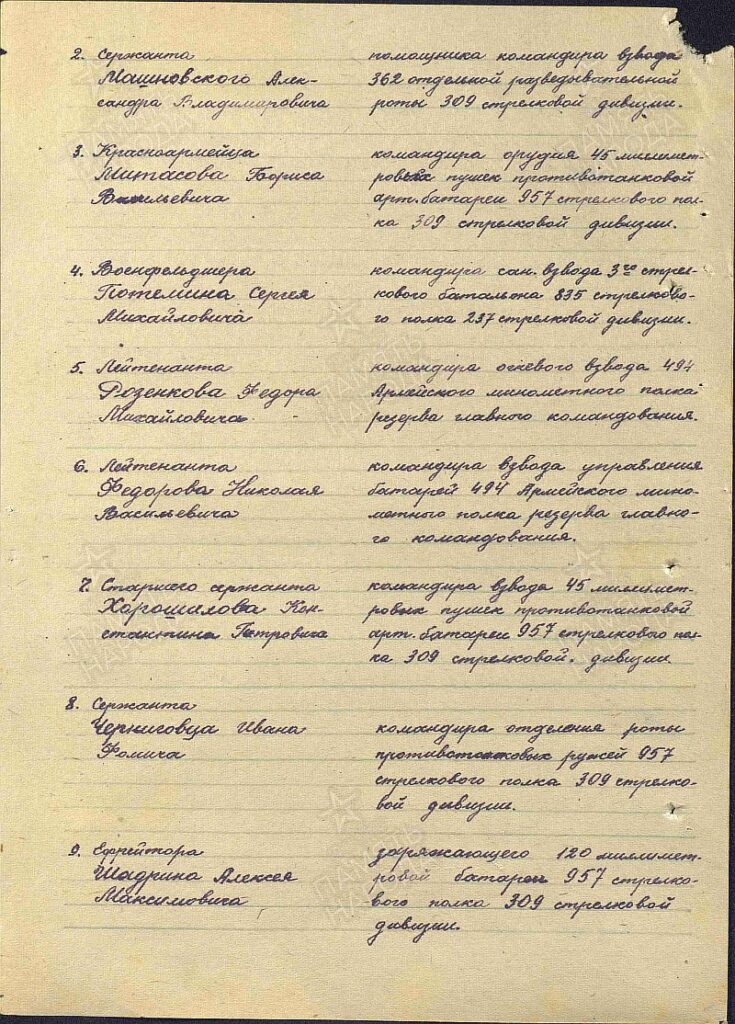 2. Сержанта помощника командира взвода
Машновского Алек- 362 отдельной разведывательной
сандра Владимировича роты 309 стрелковой дивизии.
3. Красноармейца командира орудия 45 миллимет-
Митасова Бориса ровых пушек противотанковой
Васильевича арт. батареи 957 стрелкового пол-
ка 309 стрелковой дивизии.
4. Военфельдшера командира сан. взвода 3го стрел-
Потемина Сергея кового батальона 835 стрелково-
Михайловича го полка 237 стрелковой дивизии.
5. Лейтенанта командира огневого взвода 494
Розенкова Федора Армейского минометного полка
Михайловича резерва главного командования.
6. Лейтенанта командира взвода управления
Федорова Николая батарей 494 Армейского мино-
Васильевича метного полка резерва главно-
го командования.
7. Старшего сержанта командира взвода 45 миллимет-
Хорошилова Кон- ровых пушек противотанковой
стантина Петровича арт. батареи 957 стрелкового пол-
ка 309 стрелковой. дивизии.
8. Сержанта
Черниговца Ивана командира отделения роты
Фомича противотанковых ружей 957
стрелкового полка 309 стрелко-
вой дивизии.
9. Ефрейтора заряжающего 120 миллимет-
Шадрина Алексея ровой батареи 957 стрелко-
Максимовича вого полка 309 стрелковой
дивизии.
ПАМЯТЬ
НАРОДА